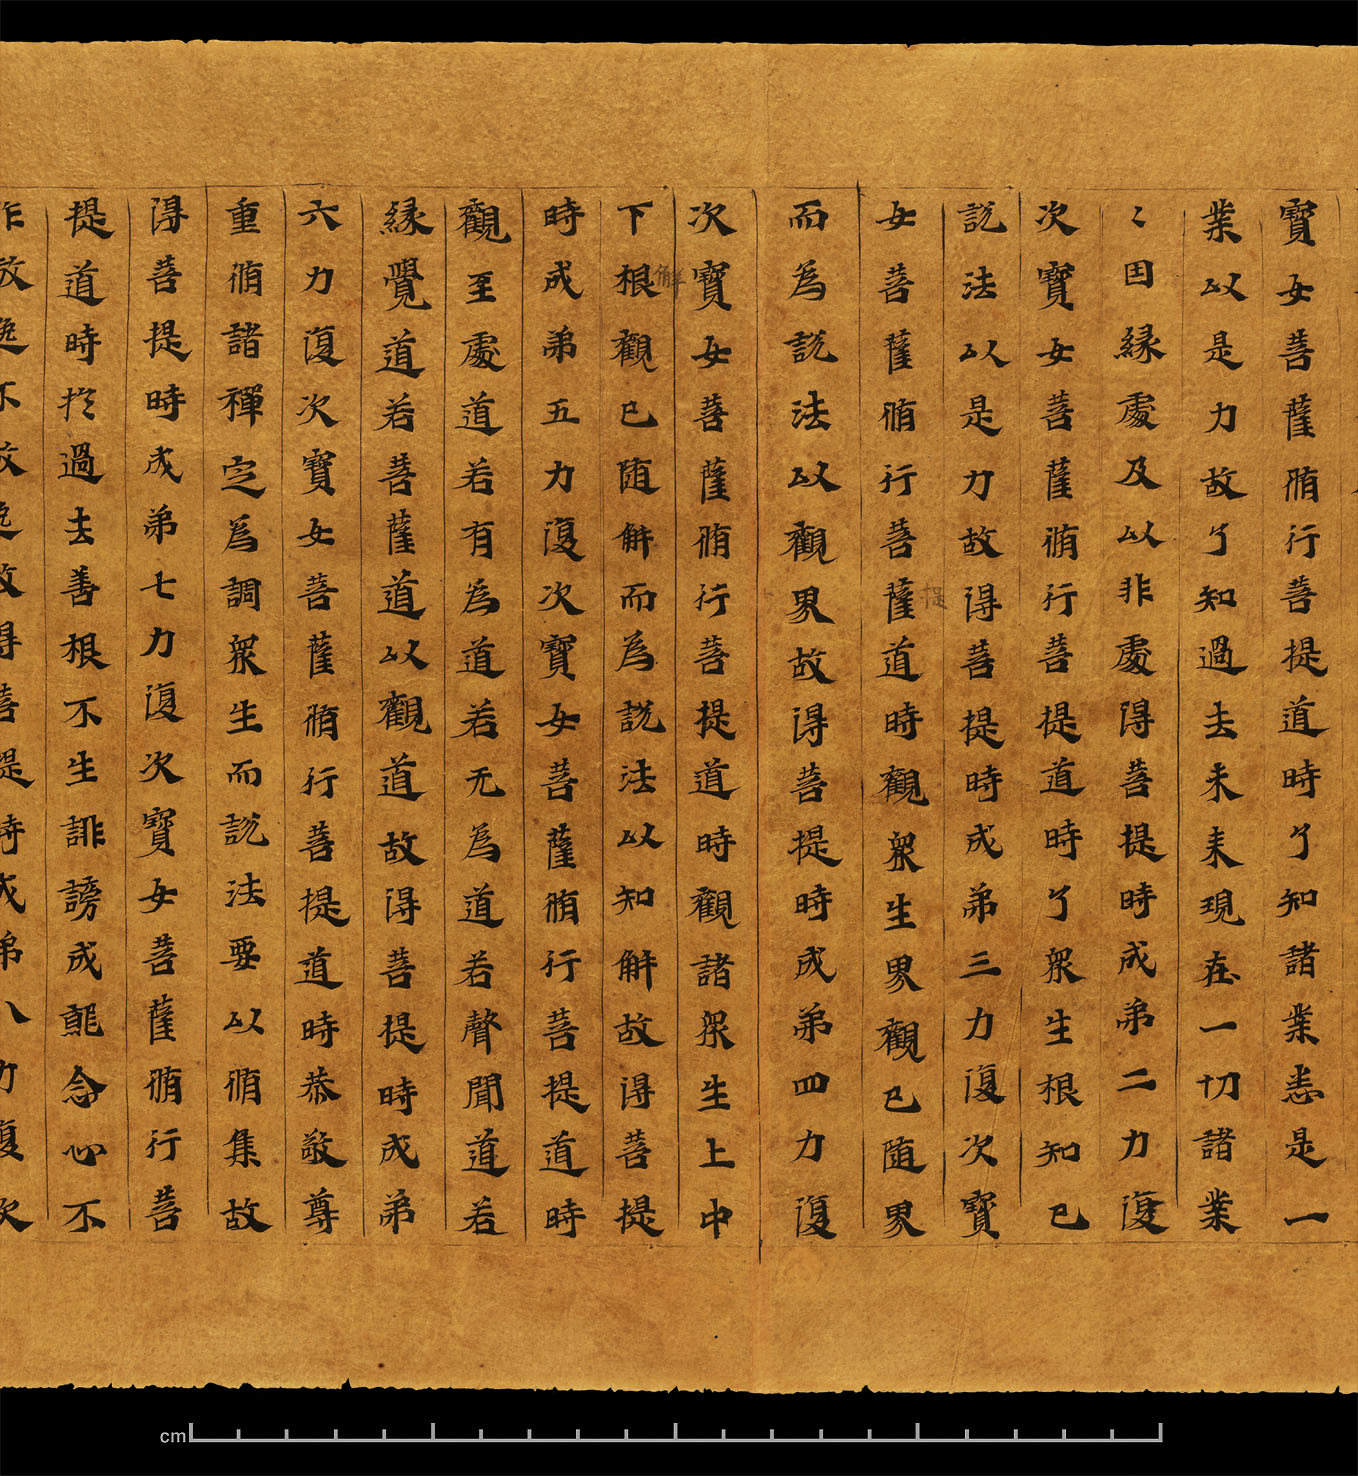 寶女菩薩脩行菩提道時了知諸業悉是一
業以是力故了知過去未来現在一切諸業
〻因縁處及以非處得菩提時成弟二力復
次寶女菩薩脩行菩提道時了衆生根知已
說法以是力故得菩提時成弟三力復次寶
女菩薩脩行菩薩道時觀衆生界觀已随界
提
而為說法以觀界故得菩提時成弟四力復
次寶女菩薩脩行菩提道時觀諸衆生上中
下根觀已随解而為說法以知解故得菩提
解
時成弟五力復次寶女菩薩脩行菩提道時
觀至處道若有為道若无為道若聲聞道若
縁覺道若菩薩道以觀道故得菩提時成弟
六力復次寶女菩薩脩行菩提道時恭敬尊
重脩諸禪定為調衆生而說法要以脩集故
得菩提時成弟七力復次寶女菩薩脩行菩
提道時於過去善根不生誹謗成就念心不
作放逸不放逸故得菩提時成弟八力復次
cm